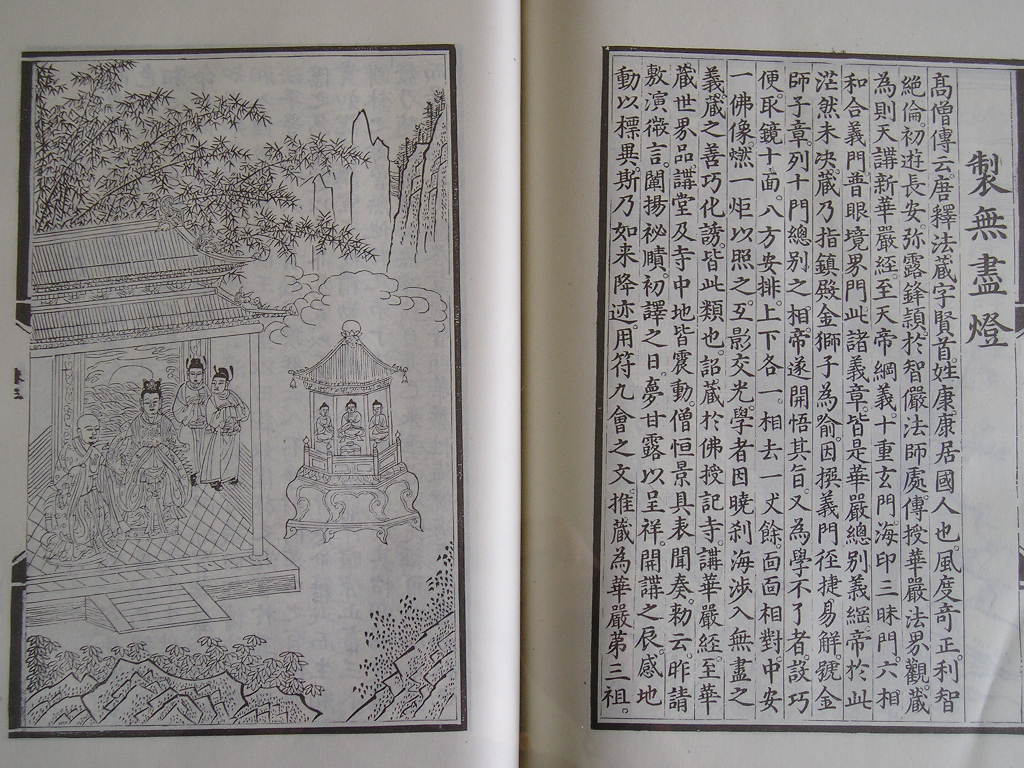 製無盡燈
高僧傳云。唐釋法蔵字賢首。姓康康居國人也。風度奇正。利智
絕倫初遊長安。弥露鋒頴於智儼法師處。傳授華嚴法界觀。蔵
為則天講新華嚴經。至天帝網義。十重玄門。海印三昧門。六相
和合義門。普眼境界門。此諸義章。皆是華嚴總別義綱。帝於此
茫然未決。蔵乃指鎮殿金獅子為喻。因撰義門徑捷易解。號金
師子章。列十門總別之相。帝遂開悟其旨。又為學不了者。設巧
便。取鏡十面。八方安排。上下各一。相去一丈餘。面面相對。中安
一佛像。燃一炬以照之。互影交光。學者因曉刹海涉入無盡之
義。蔵之善巧化誘。皆此類也。詔蔵於佛授記寺。講華嚴經。至華
蔵世界品。講堂及寺中地皆震動。僧恒景具表聞奏。勑云。昨請
敷演微言。闡揚祕賾。初譯之日。夢甘露以呈祥。開講之辰。感地
動以標異。斯乃如来降迹。用符九會之文。推蔵為華嚴第三祖。